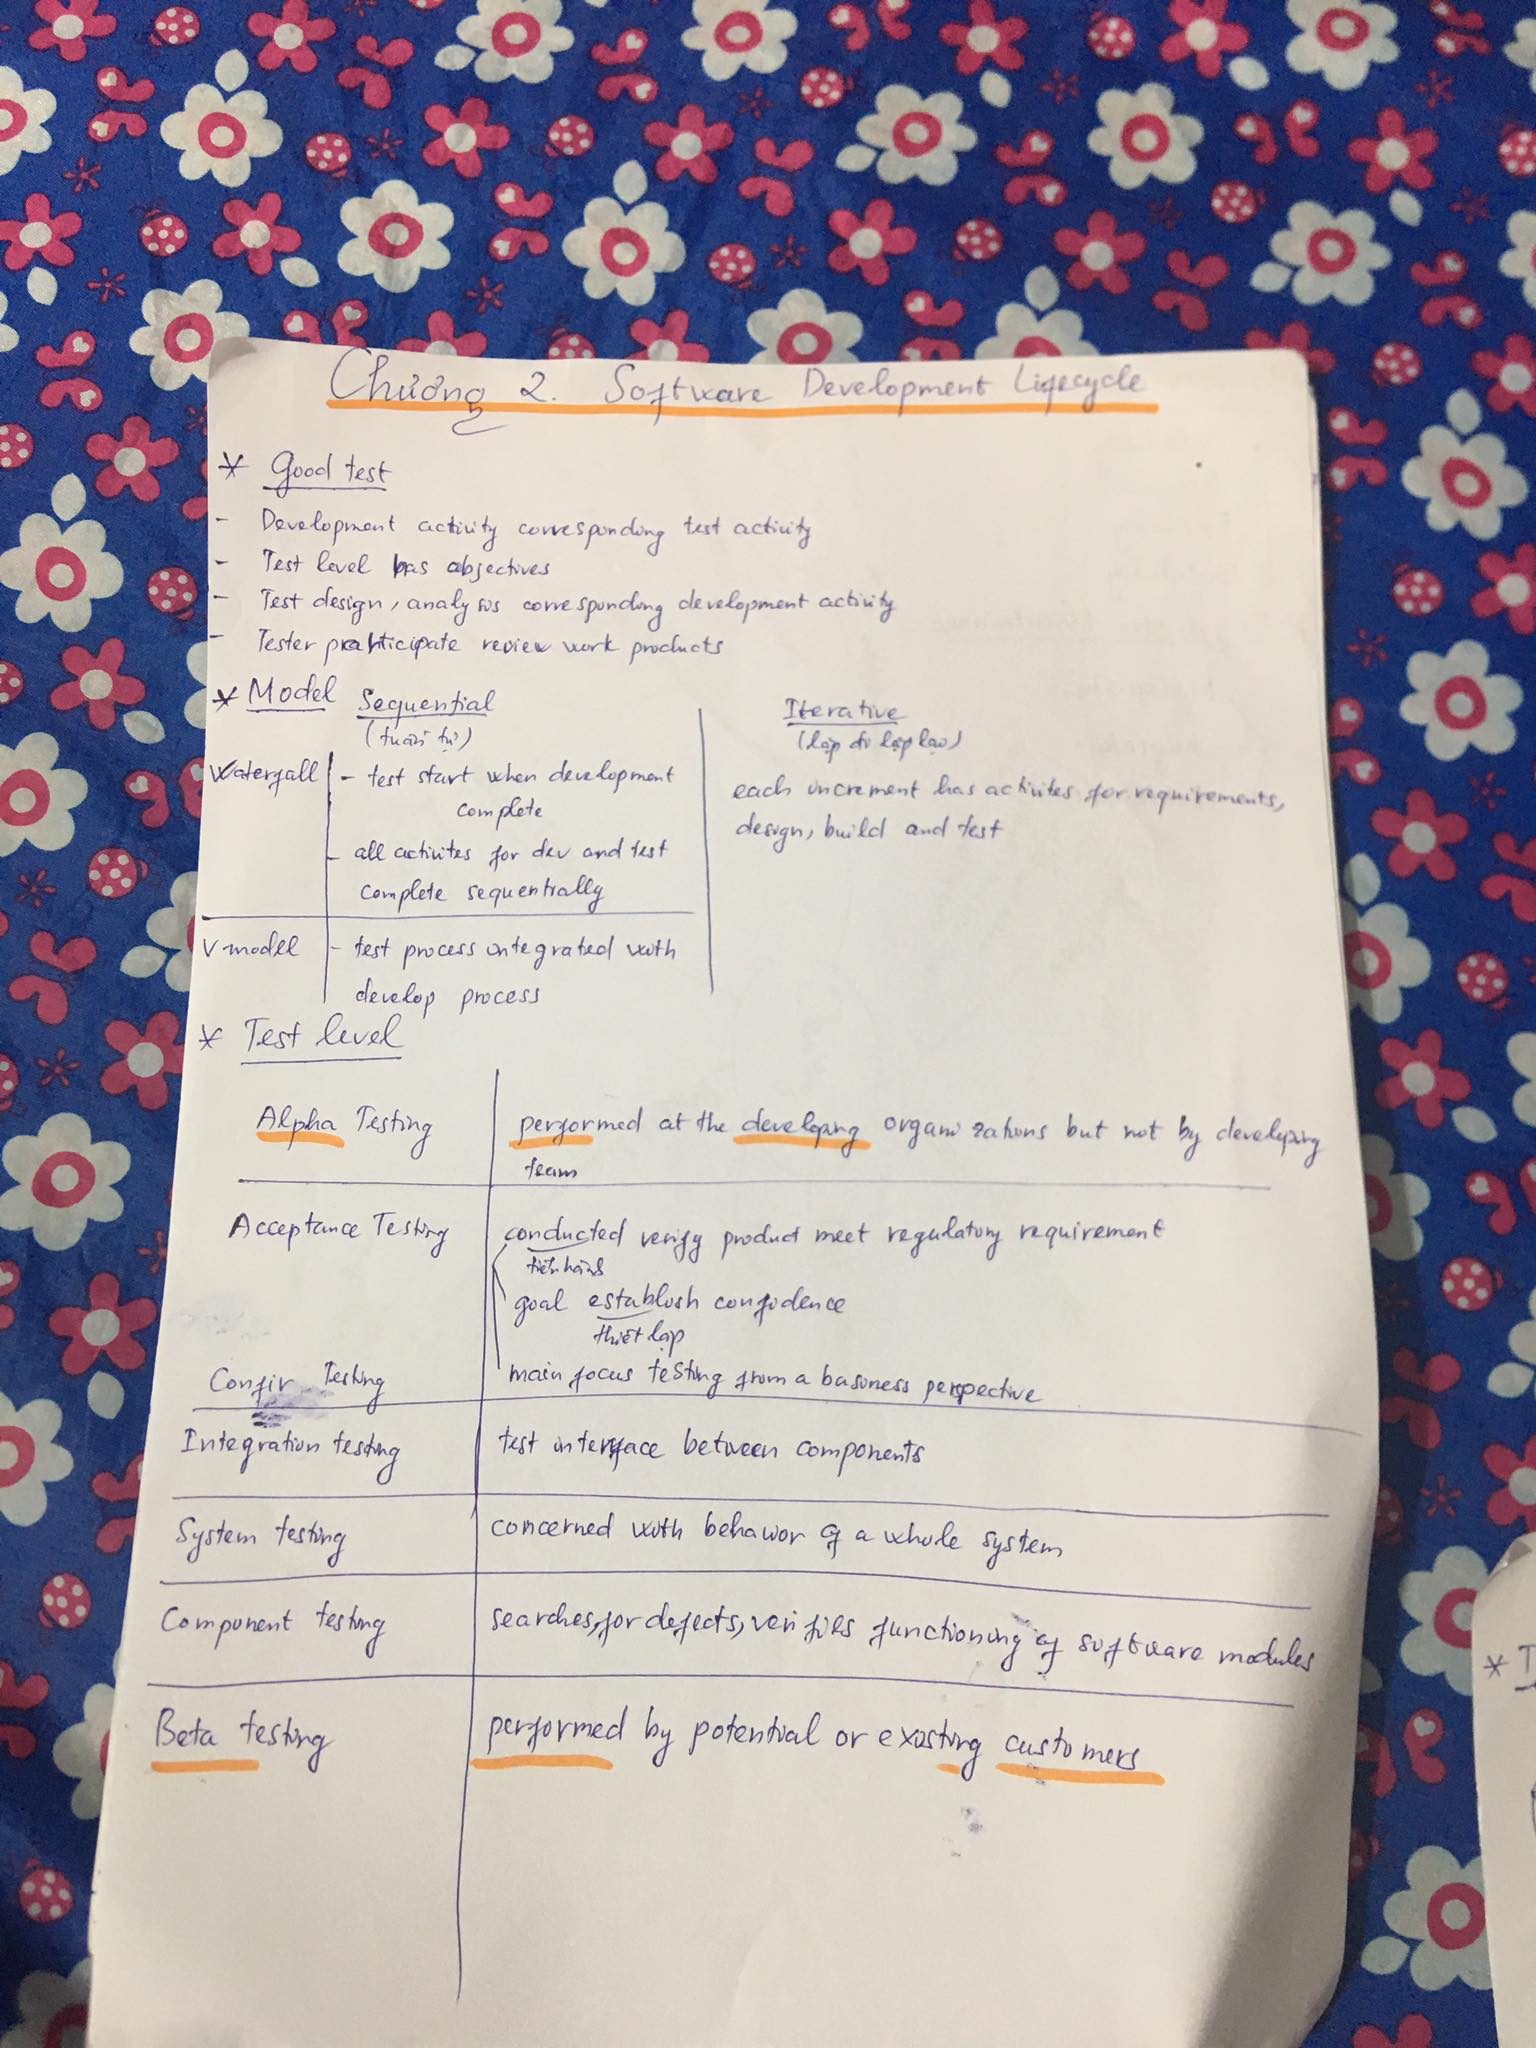 Chương 2. Software Development Lifecycle
* Good test
- Development activity corresponding test activity
- Test level has objectives
- Test design, analysis corresponding development activity
- Tester participate review work products
* Model Sequential
(tuần tự)
Iterative
(lặp đi lặp lại)
Waterfall - test start when development
complete
- all activites for dev and test
complete sequentially
each increment has activites for requirements,
design, build and test
V model - test process integrated with
develop process
* Test level
Alpha Testing performed at the developing organizations but not by developing
team
Acceptance Testing conducted verify product meet regulatory requirement
tiến hành
goal establish confidence
thiết lập
Confir Testing main focus testing from a business perspective
Integration testing test interface between components
System testing concerned with behavior of a whole system
Component testing searches, for defects, verifies functioning of software modules
Beta testing performed by potential or existing customers
*